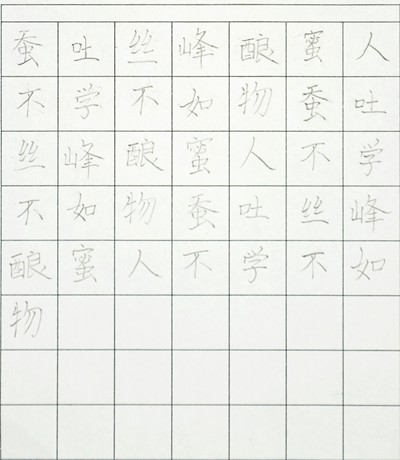 蚕吐丝峰酿蜜人
不学不如物蚕吐
丝峰酿蜜人不学
不如物蚕吐丝峰
酿蜜人不学不如
物